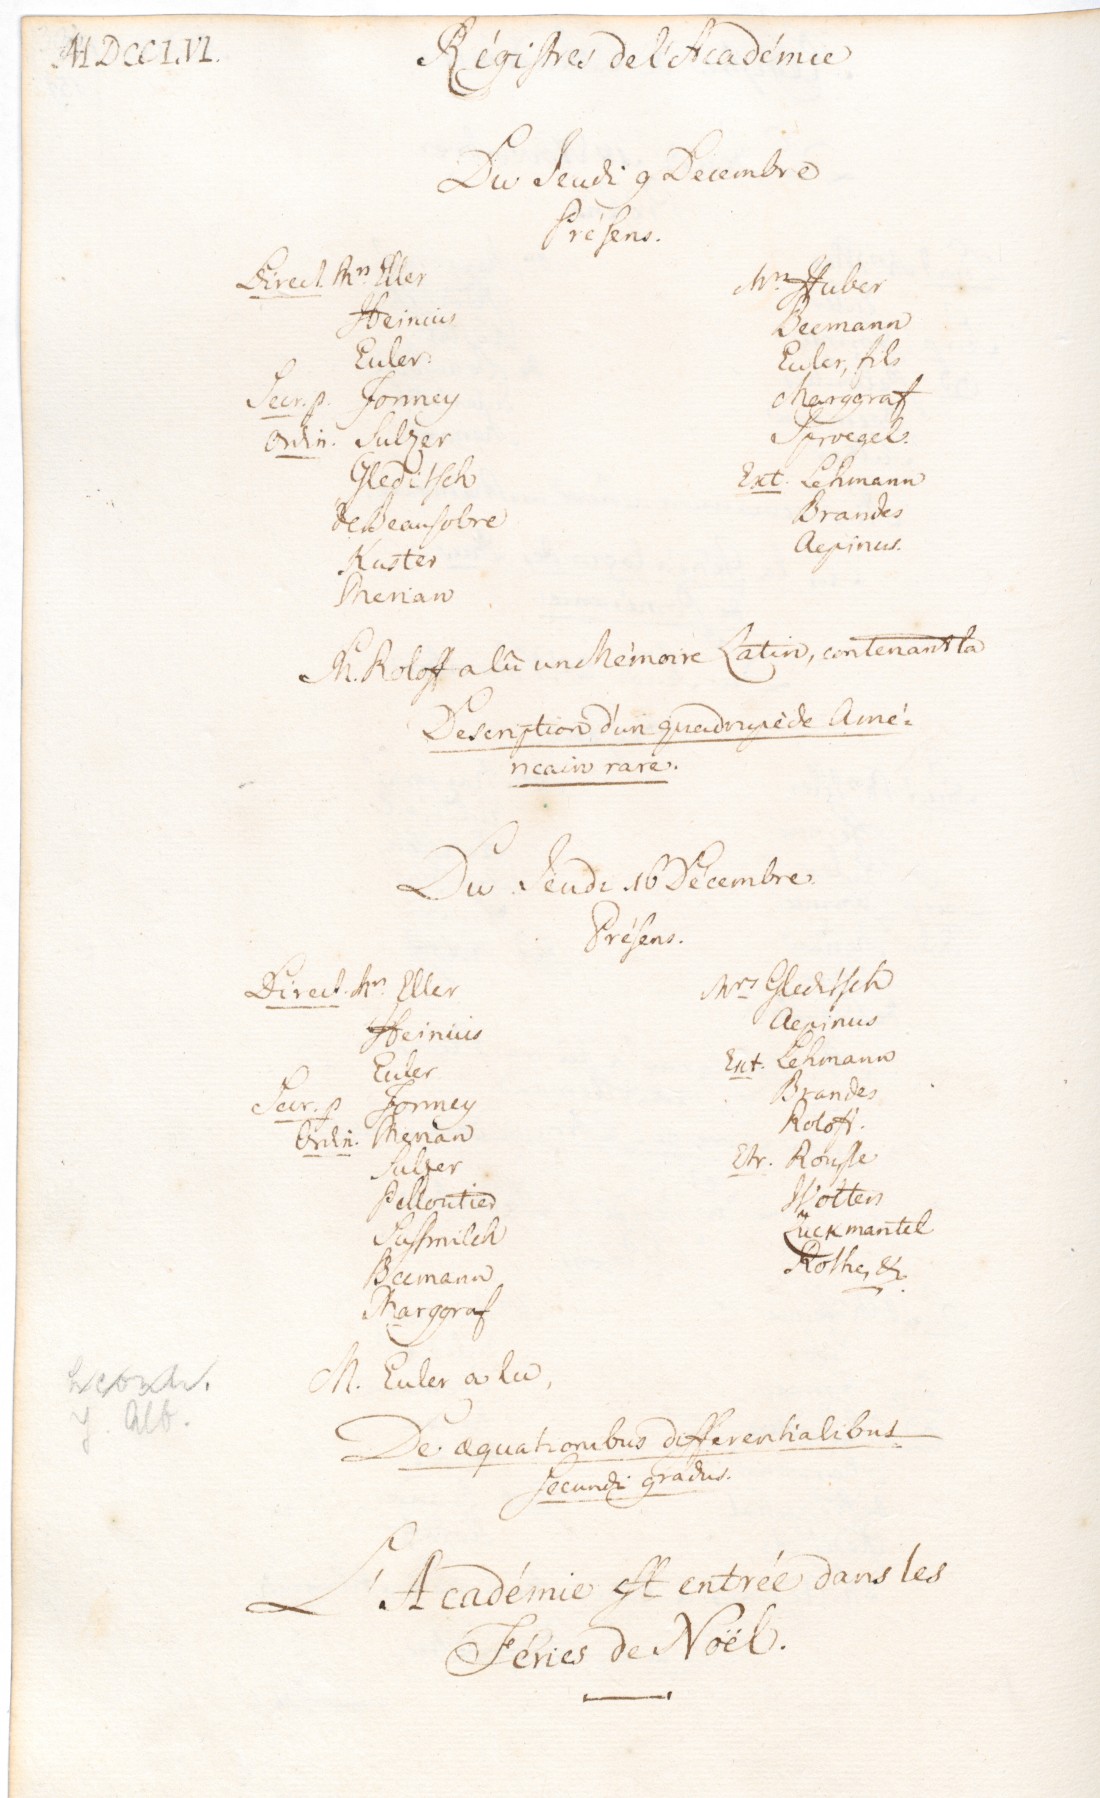 MDCCLVI.
Régistres de l'Académie
Du Jeudi 9 Decembre
Présens.
Direct. Mrs Eller
Heinius
Euler.
Secr. p. Formey
Ordin. Sulzer
Gleditsch
de Beausobre
Kuster
Merian
Mrs Huber
Beemann
Euler, fils
Marggraf
Sproegel.
Ext. Lehmann
Brandes
Aepinus.
M. Roloff a lû un Mémoire Latin, contenant la
Description d'un quadrupède Amé-
ricain rare.
Du Jeudi 16 Décembre.
Présens.
Direct. Mrs. Eller
Heinius
Euler
Secr. p Formey
Ordin. Merian
Sulzer
Pelloutier
Sussmilch
Beemann
Marggraf
Mrs Gleditsch
Aepinus
Ext. Lehmann
Brandes
Roloff.
Etr. Rousse
Wotters
Lückmantel
Rothe, &c.
M. Euler a lu,
De æquationibus differentialibus
secundi gradus.
L'Académie est entrée dans les
Féries de Noël.